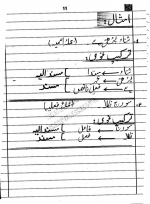 11
امثال:
ثناء بڑھی ہے (جملہ اسمیہ)
ترکیب نحوی:
ثناء ← مبتدا } مسند الیہ
ہے ← فعل ناقص } مسند
سورج نکلا (جملہ فعلیہ)
ترکیب نحوی:
سورج ← فاعل } مسند الیہ
نکلا ← فعل } مسند